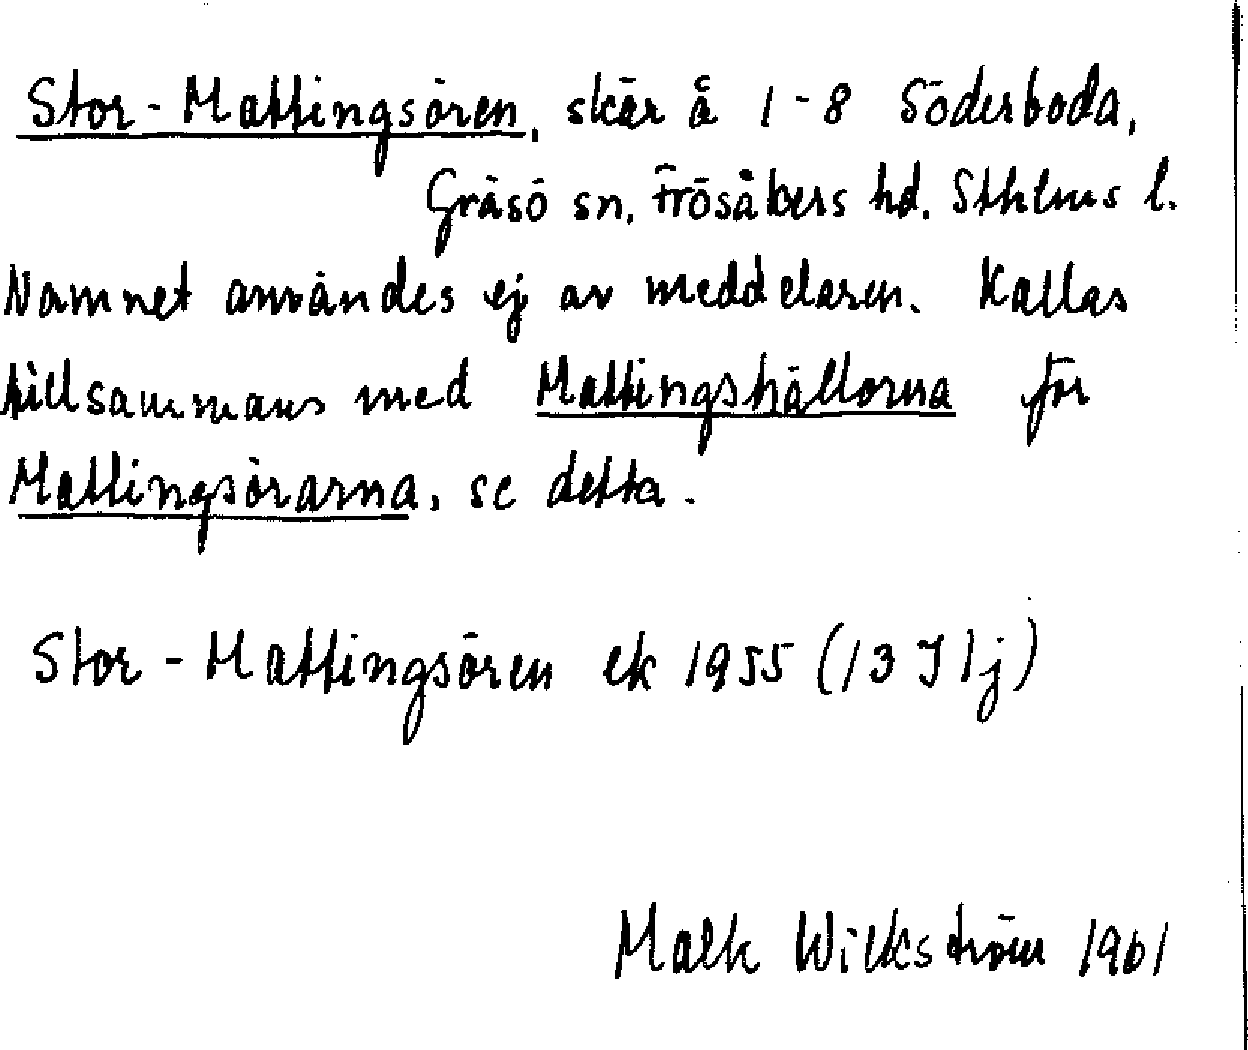 Stor-Mattingsören, skär å 1-8 Söderboda,
Gräsö sn, Frösåkers hd. Sthlms l.
Namnet användes ej av meddelaren. Kallas
tillsammans med Mattingshällorna för
Mattingsörarna, se detta.
Stor-Mattingsören ek 1955 (13 I 1j)
Wikström 1961